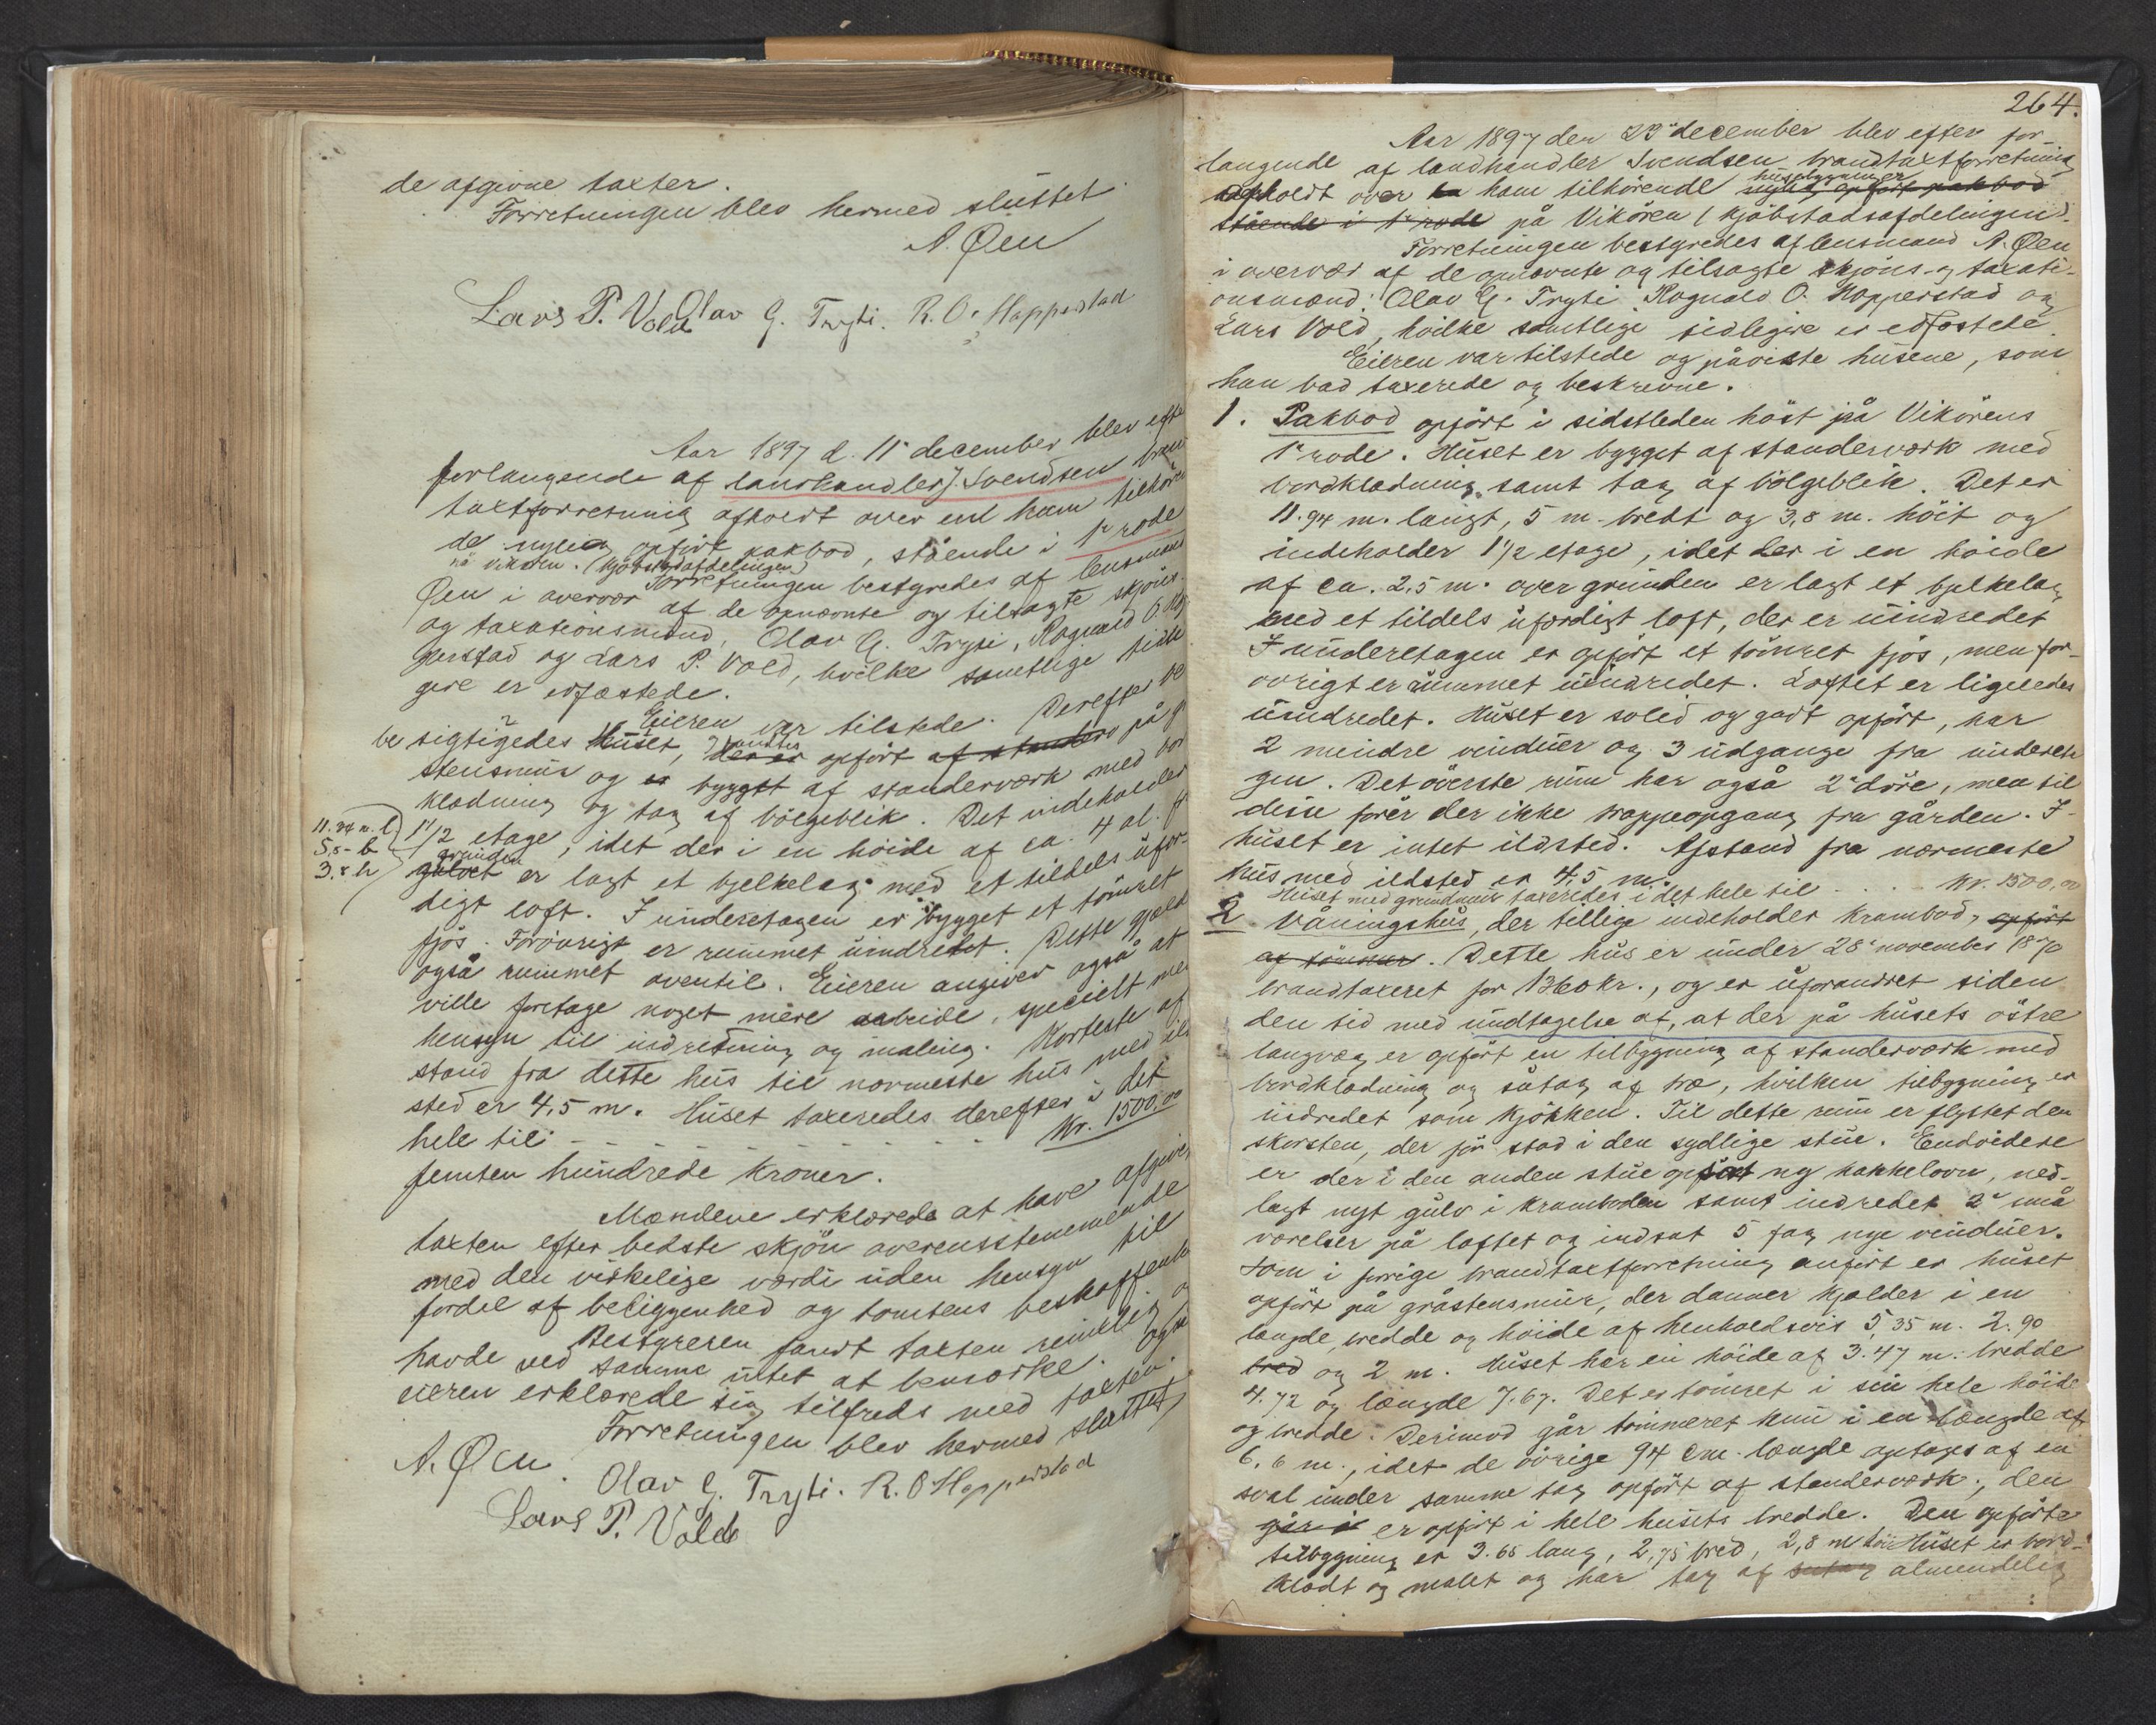 de afgivne taxter.
Forretningen blev hermed sluttet
A. Øen
Lars P. Vold Olav G. Tryti. R. O. Hopperstad
Aar 1897 d. 11te december blev efte
forlangende af landhandler J. Svendsen bran
taxtforretning afholdt over en ham tilhøren
de nylig opført pakbod, stående i 1ste rode
på Vikøren. (Kjøbstadafdelingen)
Forretningen bestyredes af lensmand
Øen i overvær af de opnævnte og tilsagte skjøns-
og taxationsmænd, Olav G. Tryti, Rognald O. Hop
perstad og Lars P. Vold, hvilke samtlige tidli
gere er edfæstede.
Eieren var tilstede. Derefter be
besigtigedes Huset, der er fandtes opført af standerv på gr
stensmur og er bygget af standerværk med bor
klædning og tag af bølgeblik. Det indeholder
11.94 m. l
5,0 - b
3.8 h
1 1/2 etage, idet der i en høide af ca. 4 al. fr
gulvet grunden er lagt et bjelkelag med et tildels ufær-
digt loft. I underetagen er bygget et tømret
fjøs. Forøvrigt er rummet uindredet. Dette gjæld
også rummet oventil. Eieren angiver også at
ville foretage noget mere arbeide, specielt me
hensyn til indredning og maling. Korteste af
stand fra dette hus til nærmeste hus med ild
sted er 4,5 m. Huset taxeredes derefter i det
hele til - - - - - - - - - - Kr. 1500,00
femten hundrede kroner.
Mændene erklærede at have afgivet
taxten efter bedste skjøn overensstemmende
med den virkelige værdi uden hensyn til
fordel af beliggenhed og tomtens beskaffenhe
Bestyreren fandt taxten rimelig o
havde ved samme intet at bemærke. Også
eieren erklærede sig tilfreds med taxten.
Forretningen blev hermed sluttet
A. Øen.
Olav G. Tryti. R. O Hopperstad
Lars P. Vold
264.
Aar 1897 den 23de december blev efter for-
langende af landhandler Svendsen brandtaxtforretning
afholdt over en ham tilhørende husebygninger nylig opført pakbod
stående i 1ste rode på Vikøren (Kjøbstadsafdelingen).
Forretningen bestyredes af lensmand A. Øen
i overvær af de opnævnte og tilsagte skjøns- og taxati-
onsmænd: Olav G. Tryti, Rognald O. Hopperstad og
Lars Vold, hvilke samtlige tidligere er edfæstede.
Eieren var tilstede og påviste husene, som
han bad taxerede og beskrevne.
1. Pakbod opført i sidstleden høst på Vikørens
1ste rode. Huset er bygget af standerværk med
bordklædning samt tag af bølgeblik. Det er
11.94 m. langt, 5 m. bredt og 3,8 m. høit og
indeholder 1 1/2 etage, idet der i en høide
af ca. 2,5 m. over grunden er lagt et bjelkelag
med et tildels ufærdigt loft, der er uindredet
I underetagen er opført et tømret fjøs, men for-
øvrigt er rummet uindredet. Loftet er ligeledes
uindredet. Huset er solid og godt opført, har
2 mindre vinduer og 3 udgange fra undereta
gen. Det øverste rum har også 2de døre, men til
disse fører der ikke trappeopgang fra gården. I
huset er intet ildsted. Afstand fra nærmeste
hus med ildsted er 4,5 m.
Huset med grundmur taxeredes i det hele til . . . . Kr. 1500,00
2 Våningshus, der tillige indeholder krambod, opført
af tømmer. Dette hus er under 28de november 1870
brandtaxeret for 1360 kr., og er uforandret siden
den tid med undtagelse af, at der på husets østre
langvæg er opført en tilbygning af standerværk med
bordklædning og sutag af træ, hvilken tilbygning er
indredet som kjøkken. Til dette rum er flyttet den
skorsten, der før stod i den sydlige stue. Endvidere
er der i den anden stue opført ny kakkelovn, ned-
lagt nyt gulv i kramboden samt indredet 2de små
værelser på loftet og indsat 5 fag nye vinduer.
Som i forrige brandtaxtforretning anført er huset
opført på gråstensmur, der danner kjælder i en
længde, bredde og høide af henholdsvis 5,35 m. 2.90
bred og 2 m. Huset har en høide af 3.47 m. bredde
4.72 og længde 7.67. Det er tømret i sin hele høide
og bredde. Derimod går tømmeret kun i en længde af
6.6 m., idet de øvrige 94 cm. længde optages af en
sval under samme tag opført af standerværk; den
går i er opført i hele husets bredde. Den opførte
tilbygning er 3.65 lang, 2,75 bred, 2,8 m høi Huset er bord-
klædt og malet og har tag af sutag almindelig